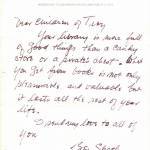 Dear Children of Troy,
Your library is more full
of good things than a candy
store or a pirate's chest - What
you get from books is not only
pleasurable and valuable but
it lasts all the rest of your
life.
I send my love to all of
you